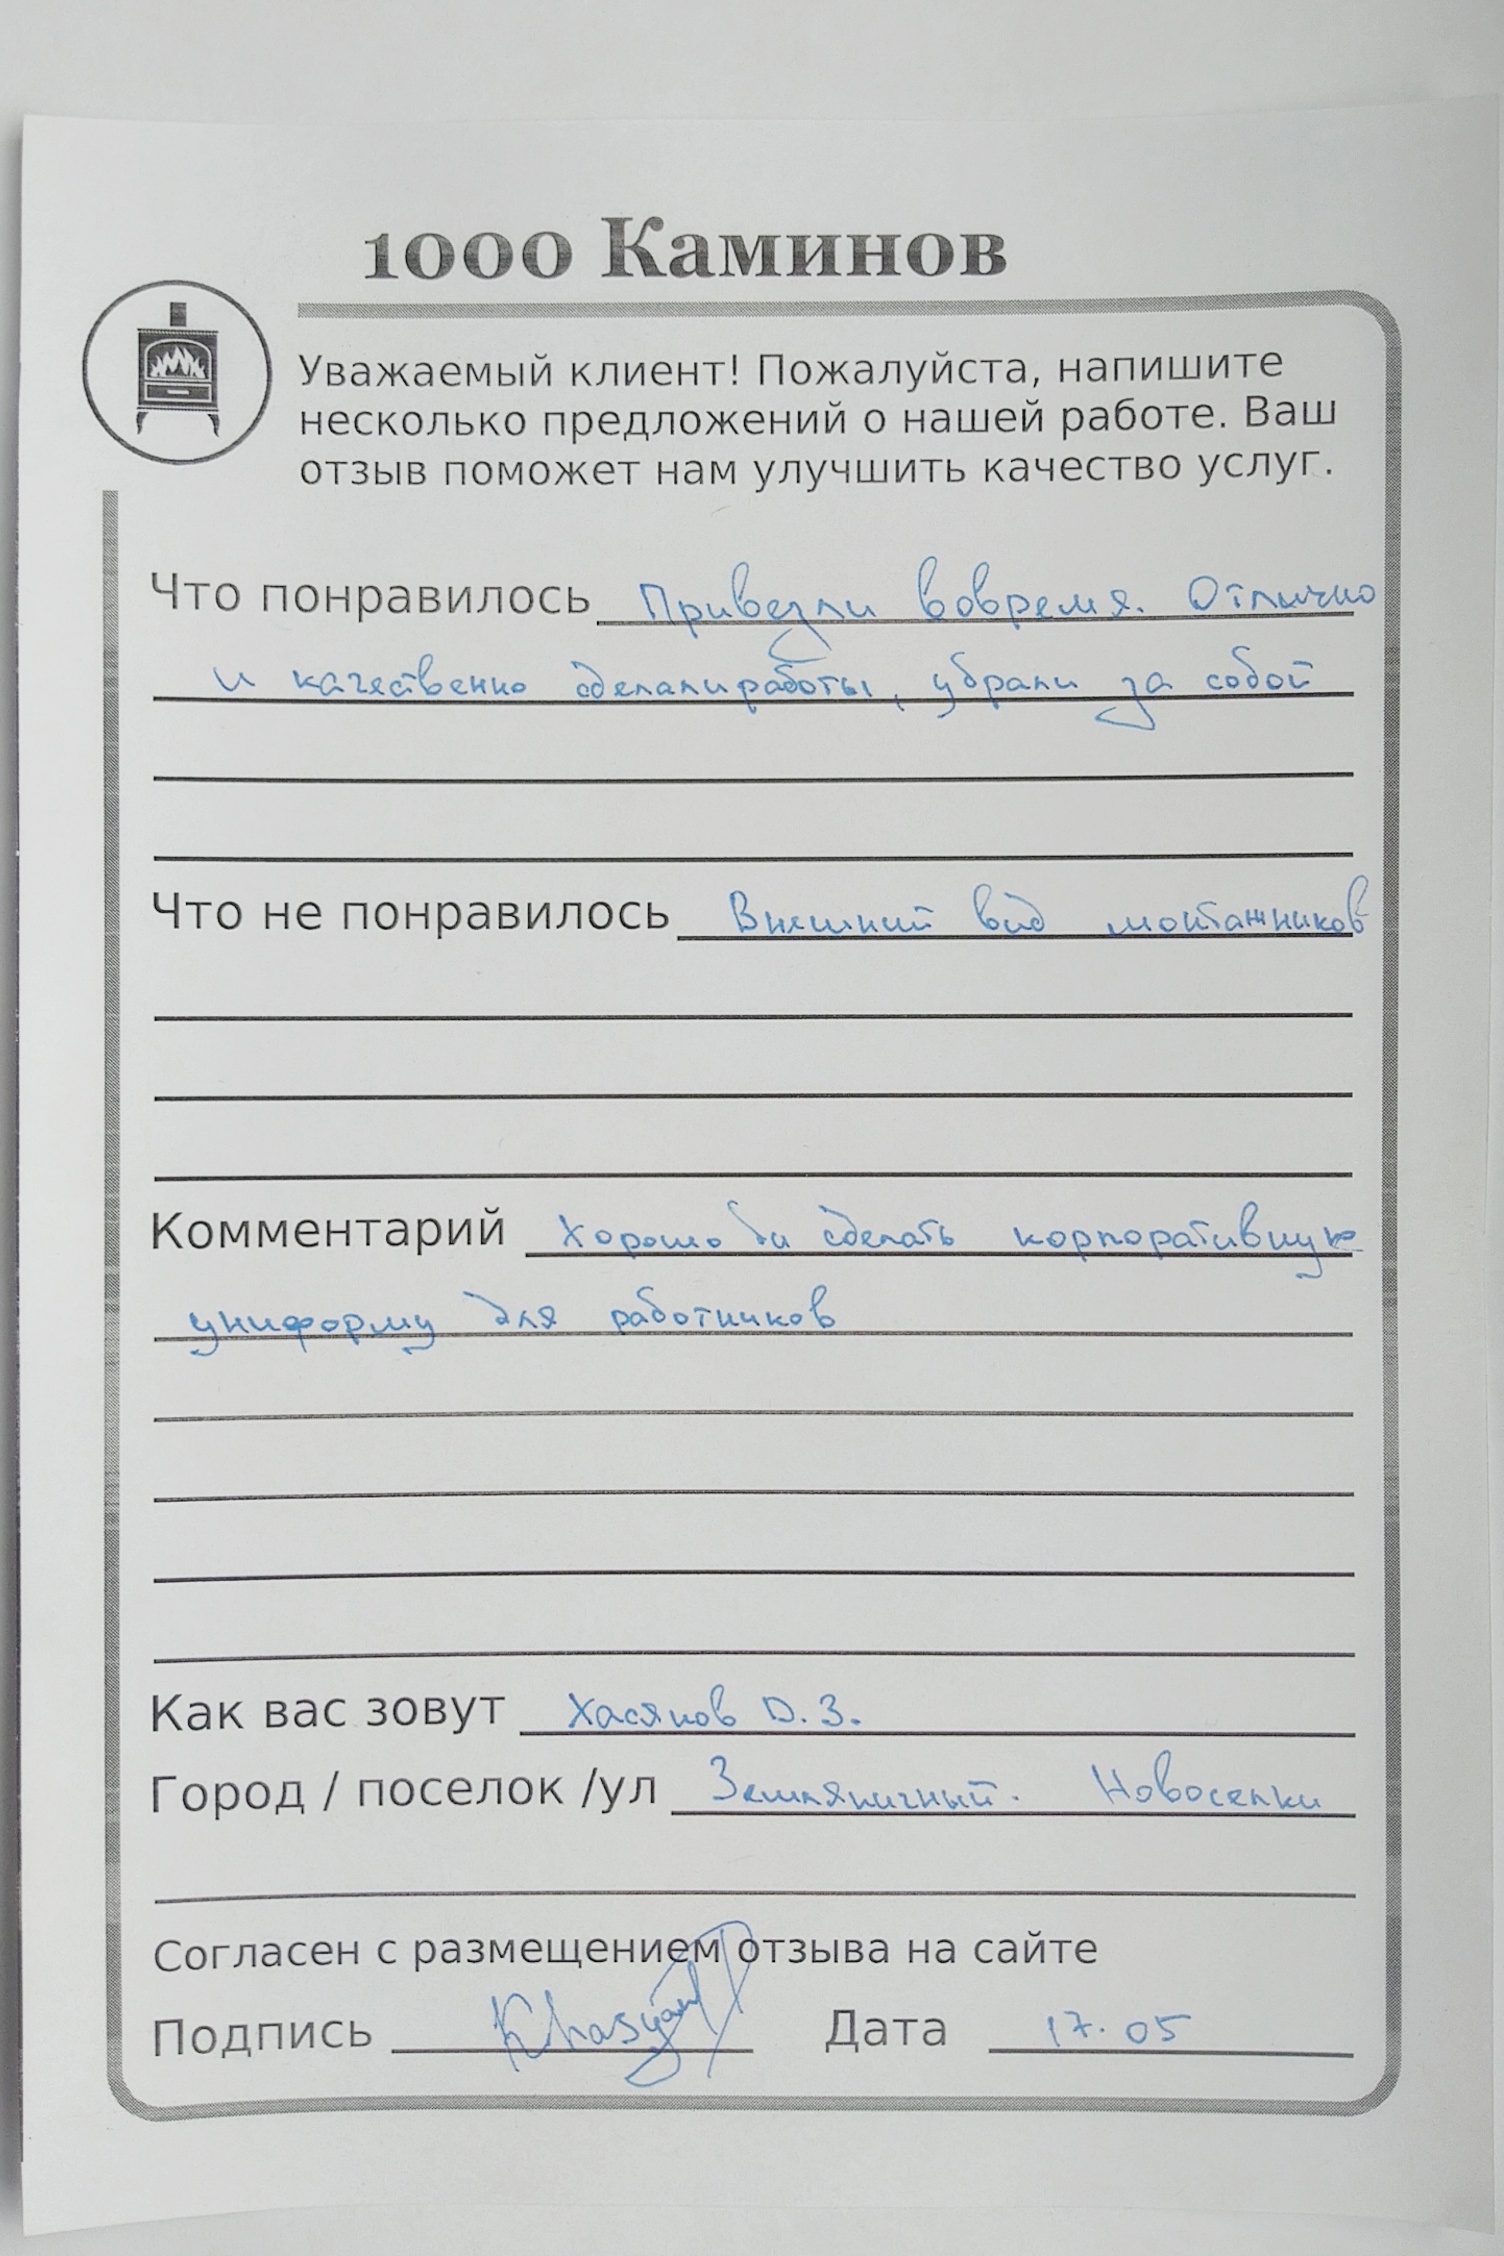 1000 Каминов
Уважаемый клиент! Пожалуйста, напишите
несколько предложений о нашей работе. Ваш
отзыв поможет нам улучшить качество услуг.
Что понравилось Привезли вовремя. Отлично
и качественно сделали работы, убрали за собой
Что не понравилось Внешний вид монтажников
Комментарий Хорошо бы сделать корпоративную
униформу для работников
Как вас зовут Хасянов D. З.
Город / поселок /ул Земляничный. Новоселки
Согласен с размещением отзыва на сайте
Подпись Khasyanov Дата 17.05